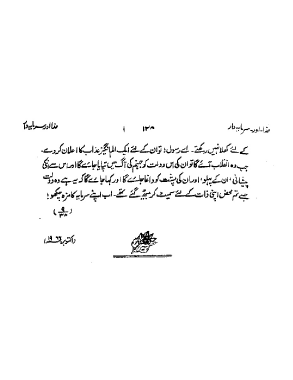 خدا اور سرمایہ دار ۱۲۸ خدا اور سرمایہ دار
کے لئے کھلا نہیں رکھتے۔ اے رسول! تو ان کے لئے ایک الم انگیز عذاب کا اعلان کر دے۔
جب وہ انقلاب آئے گا تو ان کی اس دولت کو جہنم کی آگ میں تپایا جائے گا اور اس سے ان کی
پیشانی، ان کے پہلو، اور ان کی پشت کو داغا جائے گا اور کہا جائے گا کہ یہ ہے وہ دولت
جسے تم محض اپنی ذات کے لئے سمیٹ کر بیٹھ گئے تھے۔ اب اپنے سرمایہ کا مزہ چکھو!
(اکتوبر ۱۹۶۶ء)